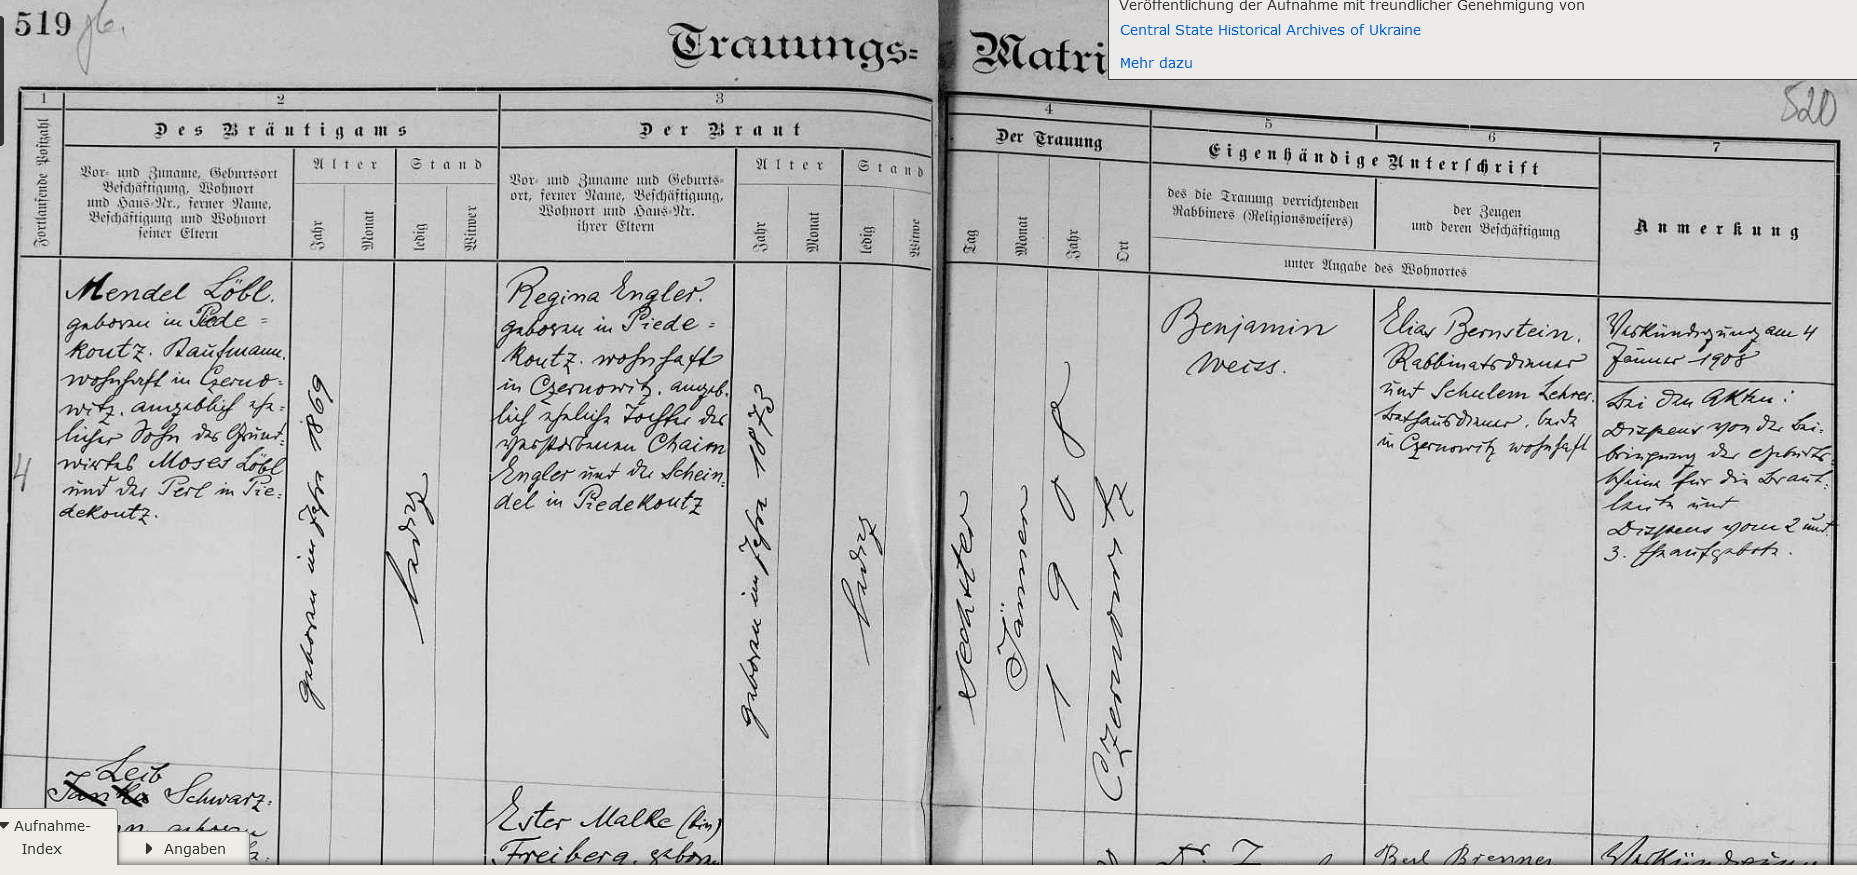 519
Veröffentlichung der Aufnahme mit freundlicher Genehmigung von
Central State Historical Archives of Ukraine
Mehr dazu
Trauungs= Matri
520
1
2
3
4
5
6
7
Des Bräutigams
Der Braut
Der Trauung
Eigenhändige Unterschrift
Anmerkung
Fortlaufende Postzahl
Vor- und Zuname, Geburtsort
Beschäftigung, Wohnort
und Haus-Nr., ferner Name,
Beschäftigung und Wohnort
seiner Eltern
Alter
Jahr
Monat
Stand
ledig
Witwer
Vor- und Zuname und Geburts-
ort, ferner Name, Beschäftigung,
Wohnort und Haus-Nr.
ihrer Eltern
Alter
Jahr
Monat
Stand
ledig
Witwe
Tag
Monat
Jahr
Ort
des die Trauung verrichtenden
Rabbiners (Religionsweisers)
der Zeugen
und deren Beschäftigung
unter Angabe des Wohnortes
4
Mendel Löbl.
geboren in Piede=
koutz. Kaufmann.
wohnhaft in Czerno=
witz. angeblich ehe=
licher Sohn des Grund=
wirtes Moses Löbl
und der Perl in Pie=
dekoutz.
geboren im Jahre 1869
ledig
Regina Engler.
geboren in Piede=
koutz. wohnhaft
in Czernowitz. angeb=
lich eheliche Tochter des
verstorbenen Chaim
Engler und der Schein=
del in Piedekoutz
geboren im Jahre 1873
ledig
sechster
Jänner
1908
Czernowitz
Benjamin
Weiss.
Elias Bernstein.
Rabbinatsdiener
und Schulem Lehrer.
Bethausdiener. beide
in Czernowitz wohnhaft
Verkündigung am 4
Jänner 1908
Bei den Akten:
Dispens von der Bei=
bringung der Geburts=
scheine für die Braut=
leute und
Dispens vom 2 und
3. Eheaufgebote.
Leib
Schwarz=
geboren
Ester Malke
Freiberg. geboren
Dr.
Berl Brenner
Verkündigung
Aufnahme-
Index
Angaben